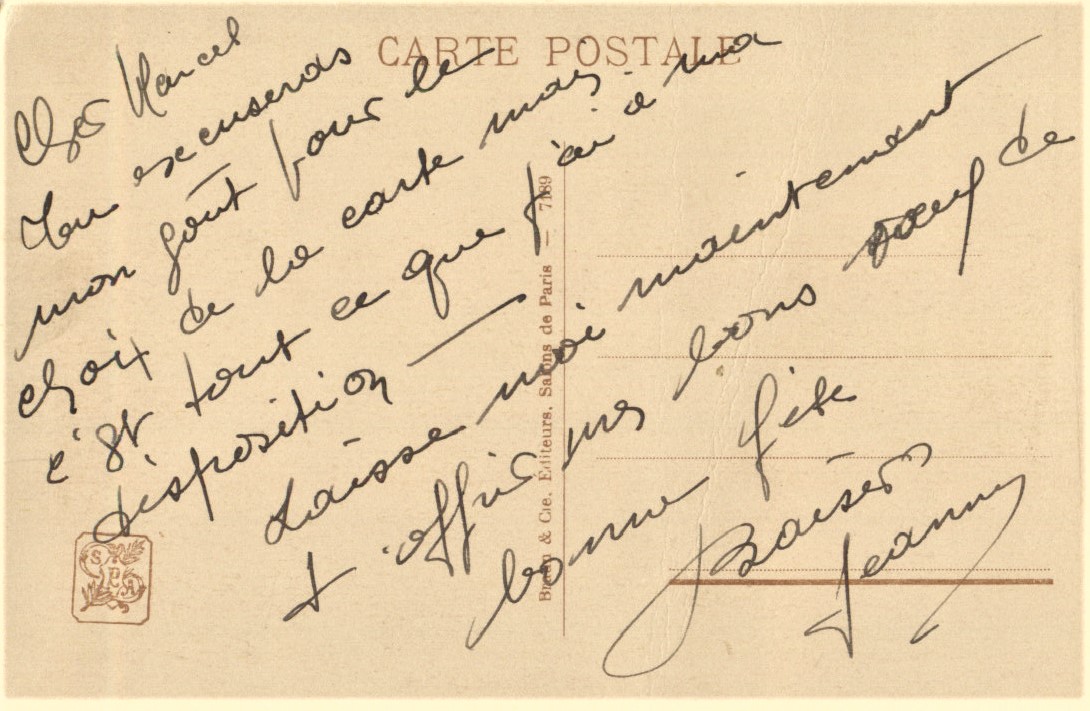 CARTE POSTALE
Cher Marcel
Tu excuseras
mon goût pour le
choix de la carte mais
c'est tout ce que j'ai à ma
disposition —
Laisse moi maintenant
t'offrir mes bons vœux de
bonne fête
Baisers
Jeanny
Braun & Cie, Editeurs, Salons de Paris — 7189
SPA